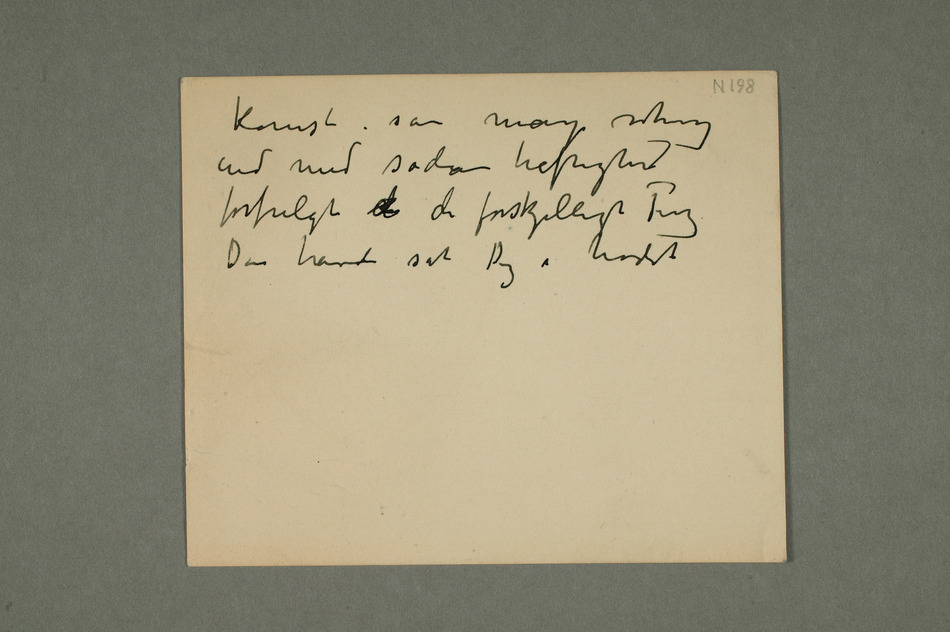 N 198
Kunst. som mang
med sådan heftighed
forfulgt de forskjelligt Ting
Du havde sat Dig i hodet